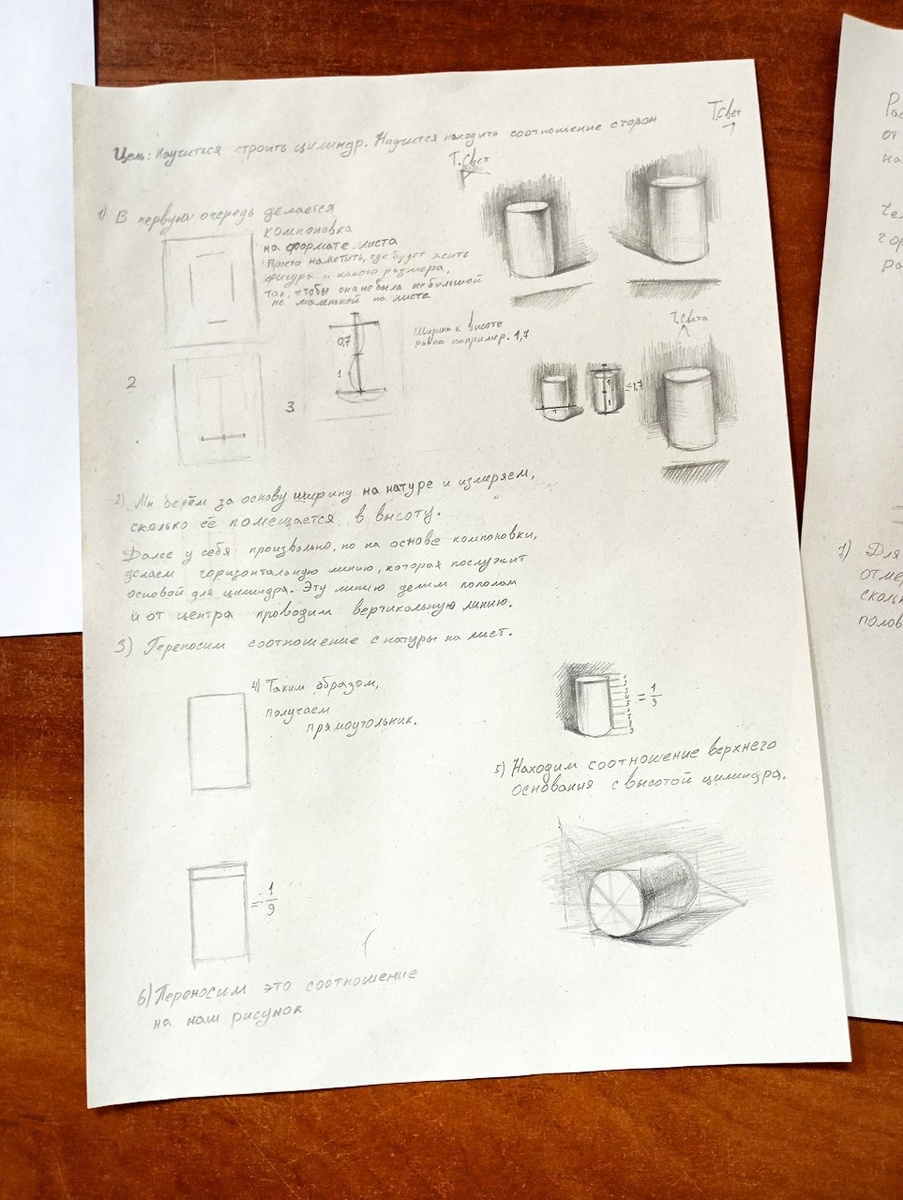 Цель: Научиться строить цилиндр. Научится находить соотношение сторон
Т.Свет
Т.Свет
1) В первую очередь делается
компоновка
на формате листа
Просто наметить, где будет
фигура и какого размера,
так, чтобы она не была не большой
не маленькой на листе
0,7
1
Ширина к высоте
равна например. 1,7
Т.Света
2
3
1
1
1
=1,7
2) Мы берём за основу ширину на натуре и измеряем,
сколько её помещается в высоту.
Далее у себя произвольно, но на основе компоновки,
делаем горизонтальную линию, которая послужит
основой для цилиндра. Эту линию делим пополам
и от центра проводим вертикальную линию.
3) Переносим соотношение с натуры на лист.
4) Таким образом,
получаем
прямоугольник.
= 1/9
9
5) Находим соотношение верхнего
основания с высотой цилиндра.
= 1/9
6) Переносим это соотношение
на наш рисунок
от
на
7) Для
отме
сколь
полов